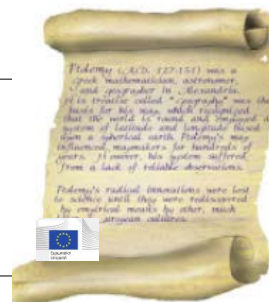 Ptolemy (A.D. 127-151) was a
Greek mathematician, astronomer,
and geographer in Alexandria.
His treatise called "Geography" was the
basis for his map, which recognized
that the world is round and employed a
system of latitude and longitude based
upon a spherical earth. Ptolemy's map
influenced mapmakers for hundreds of
years. However, his system suffered
from a lack of reliable observations.
Ptolemy's radical innovations were lost
to science until they were rediscovered
by empirical means by other, much
European cultures.